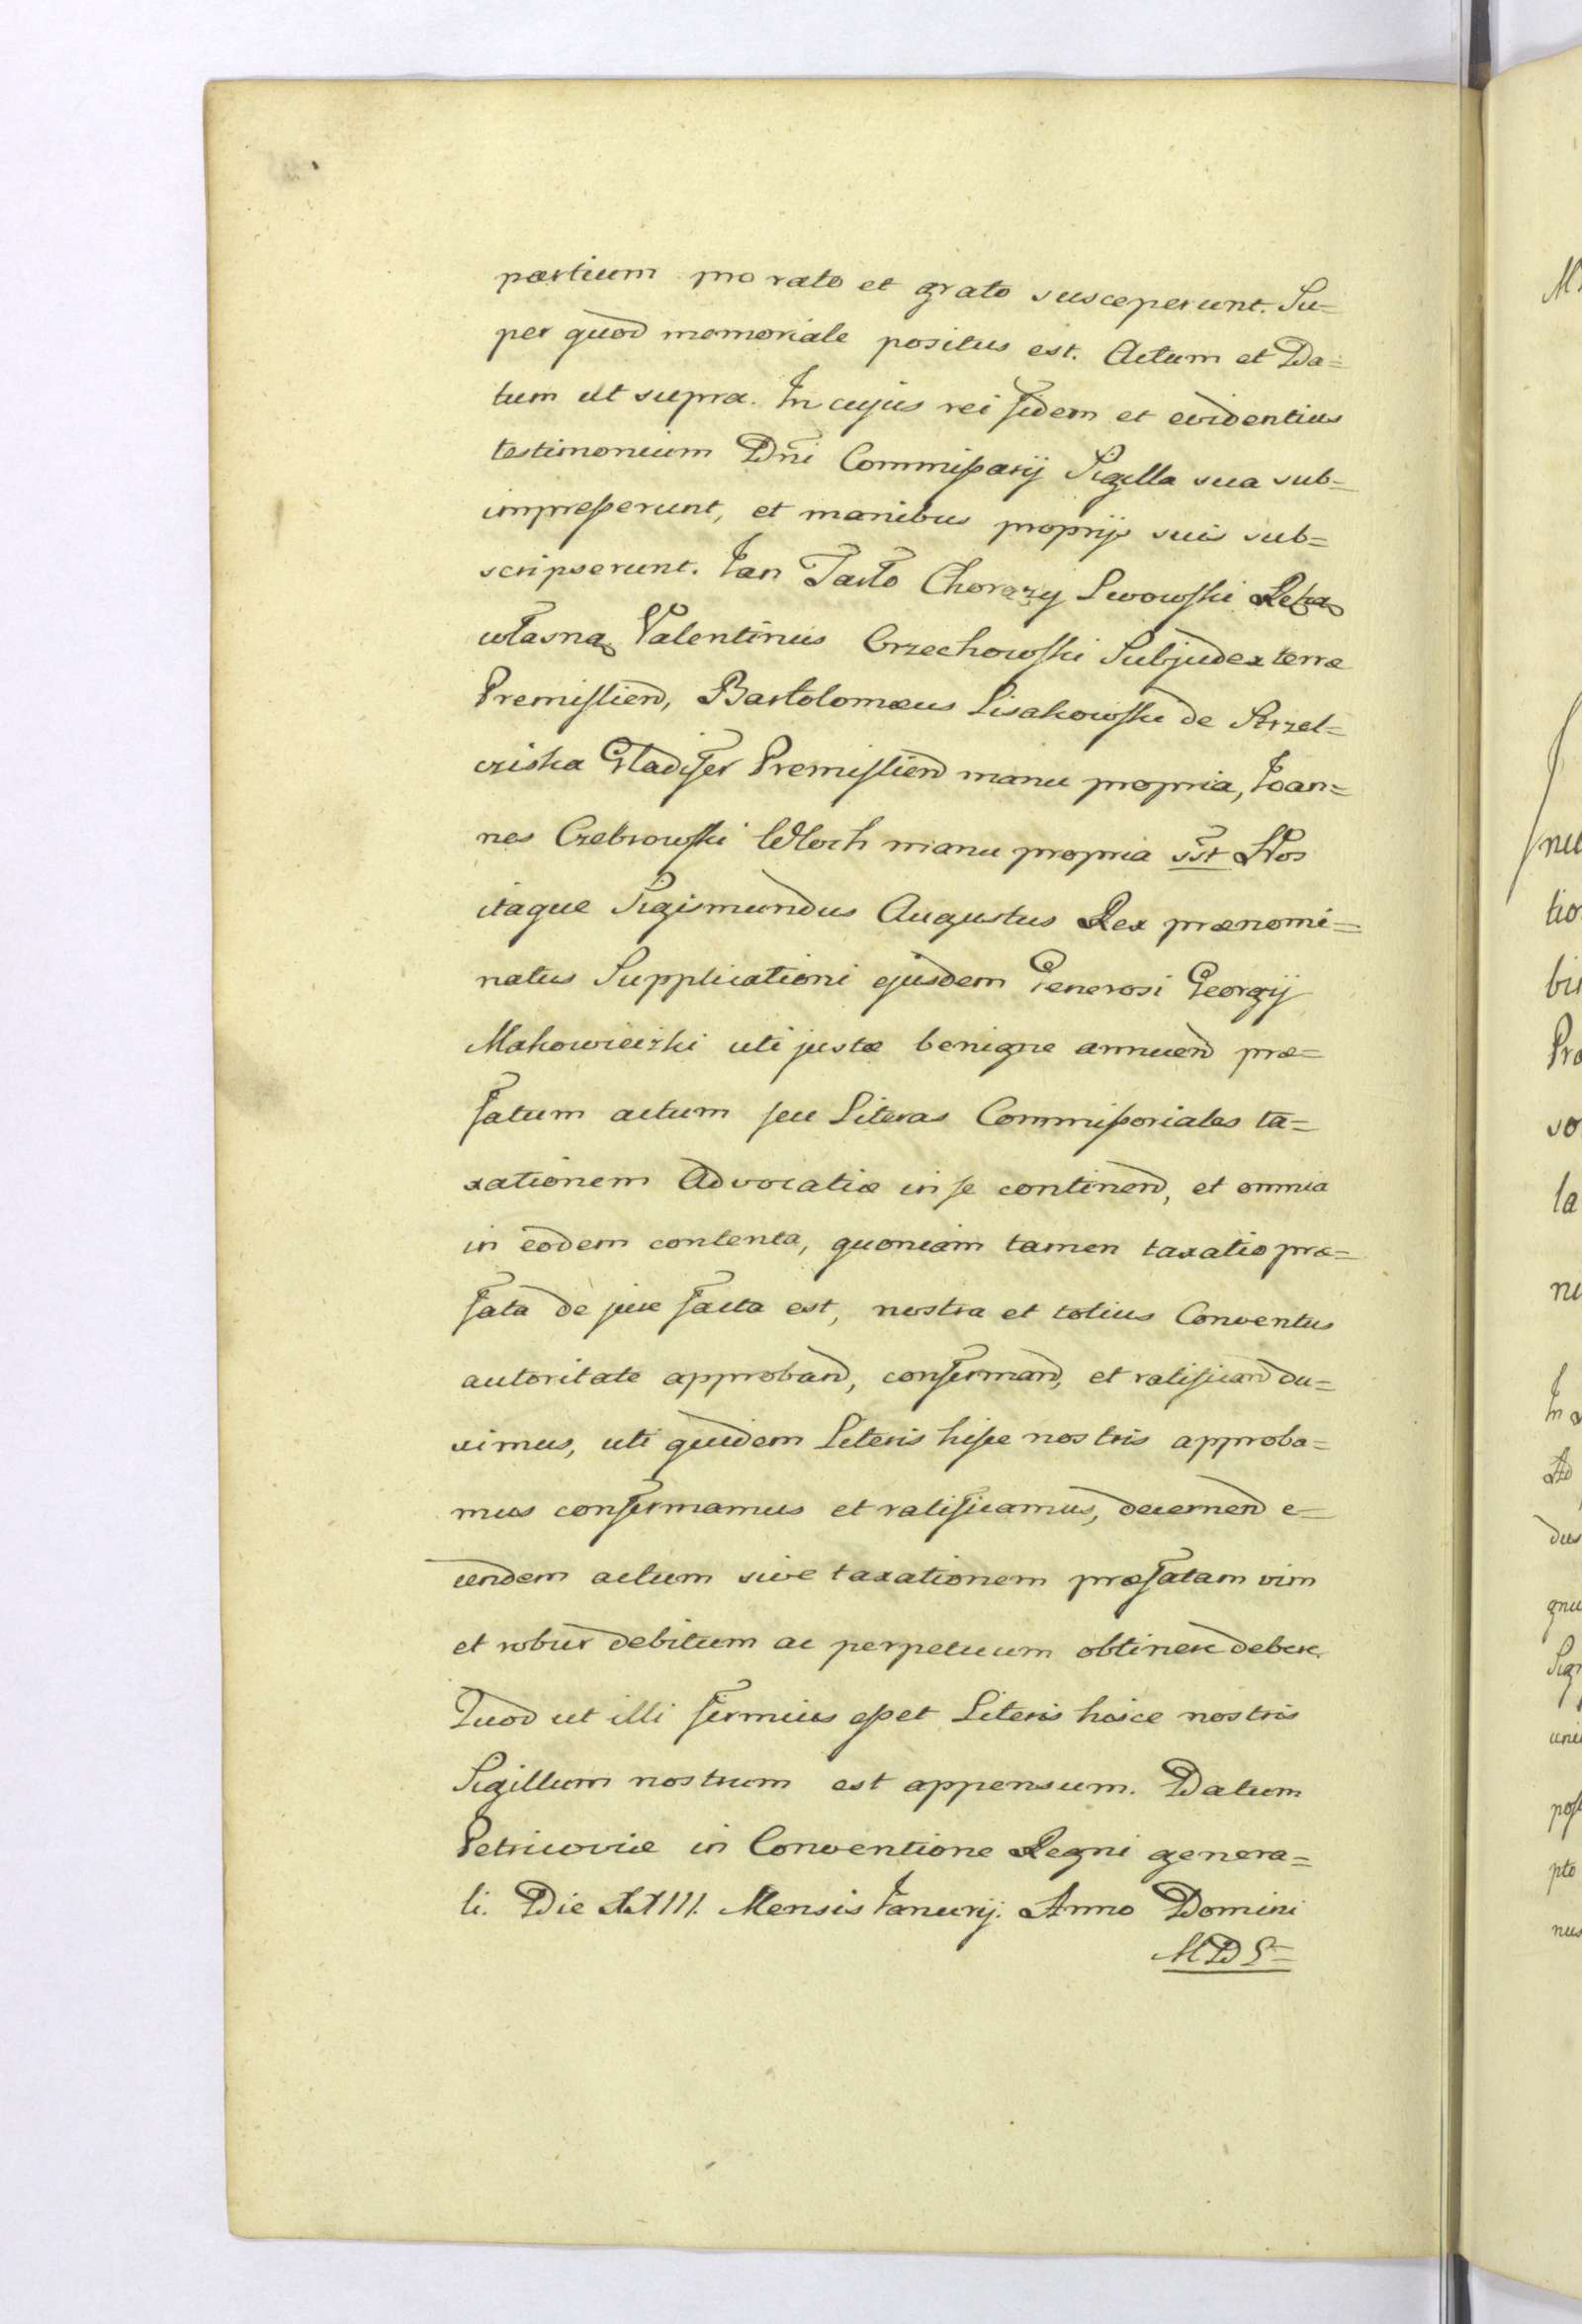 partium pro rato et grato susceperunt. Su=
per quod memoriale positus est. Actum et Da=
tum ut supra. In cujus rei fidem et evidentius
testimonium Dni Commißarij Sigilla sua sub=
impreßerunt, et manibus proprijs suis sub=
scripserunt. Jan Tarło Chorąży Lwowski Ręką
własną Valentinus Orzechowski Subjudex terræ
Premislien̄d, Bartolomæus Lisakowski de Strzel=
cziska Gladifer Premislien̄d manu propria, Joan=
nes Czebrowski Wloch manu propria sst Nos
itaque Sigismundus Augustus Rex prænomi=
natus Supplicationi ejusdem Generosi Georgij
Makowieczki uti justæ benigne annuend præ=
fatum actum seu Literas Commißoriales ta=
xationem Advocatiæ in se continend, et omnia
in eodem contenta, quoniam tamen taxatio præ=
fata de jure facta est, nostra et totius Conventus
autoritate approband, confirmand, et ratificand du=
ximus, uti quidem Literis hisce nostris approba=
mus confirmamus et ratificamus, decernend e=
undem actum sive taxationem præfatam vim
et robur debitum ac perpetuum obtinere debere.
Quod ut illi firmius eßet Literis hisce nostris
Sigillum nostrum est appensum. Datum
Petricoviæ in Conventione Regni genera=
li. Die XXIII. Mensis Januarij. Anno Domini
MDL